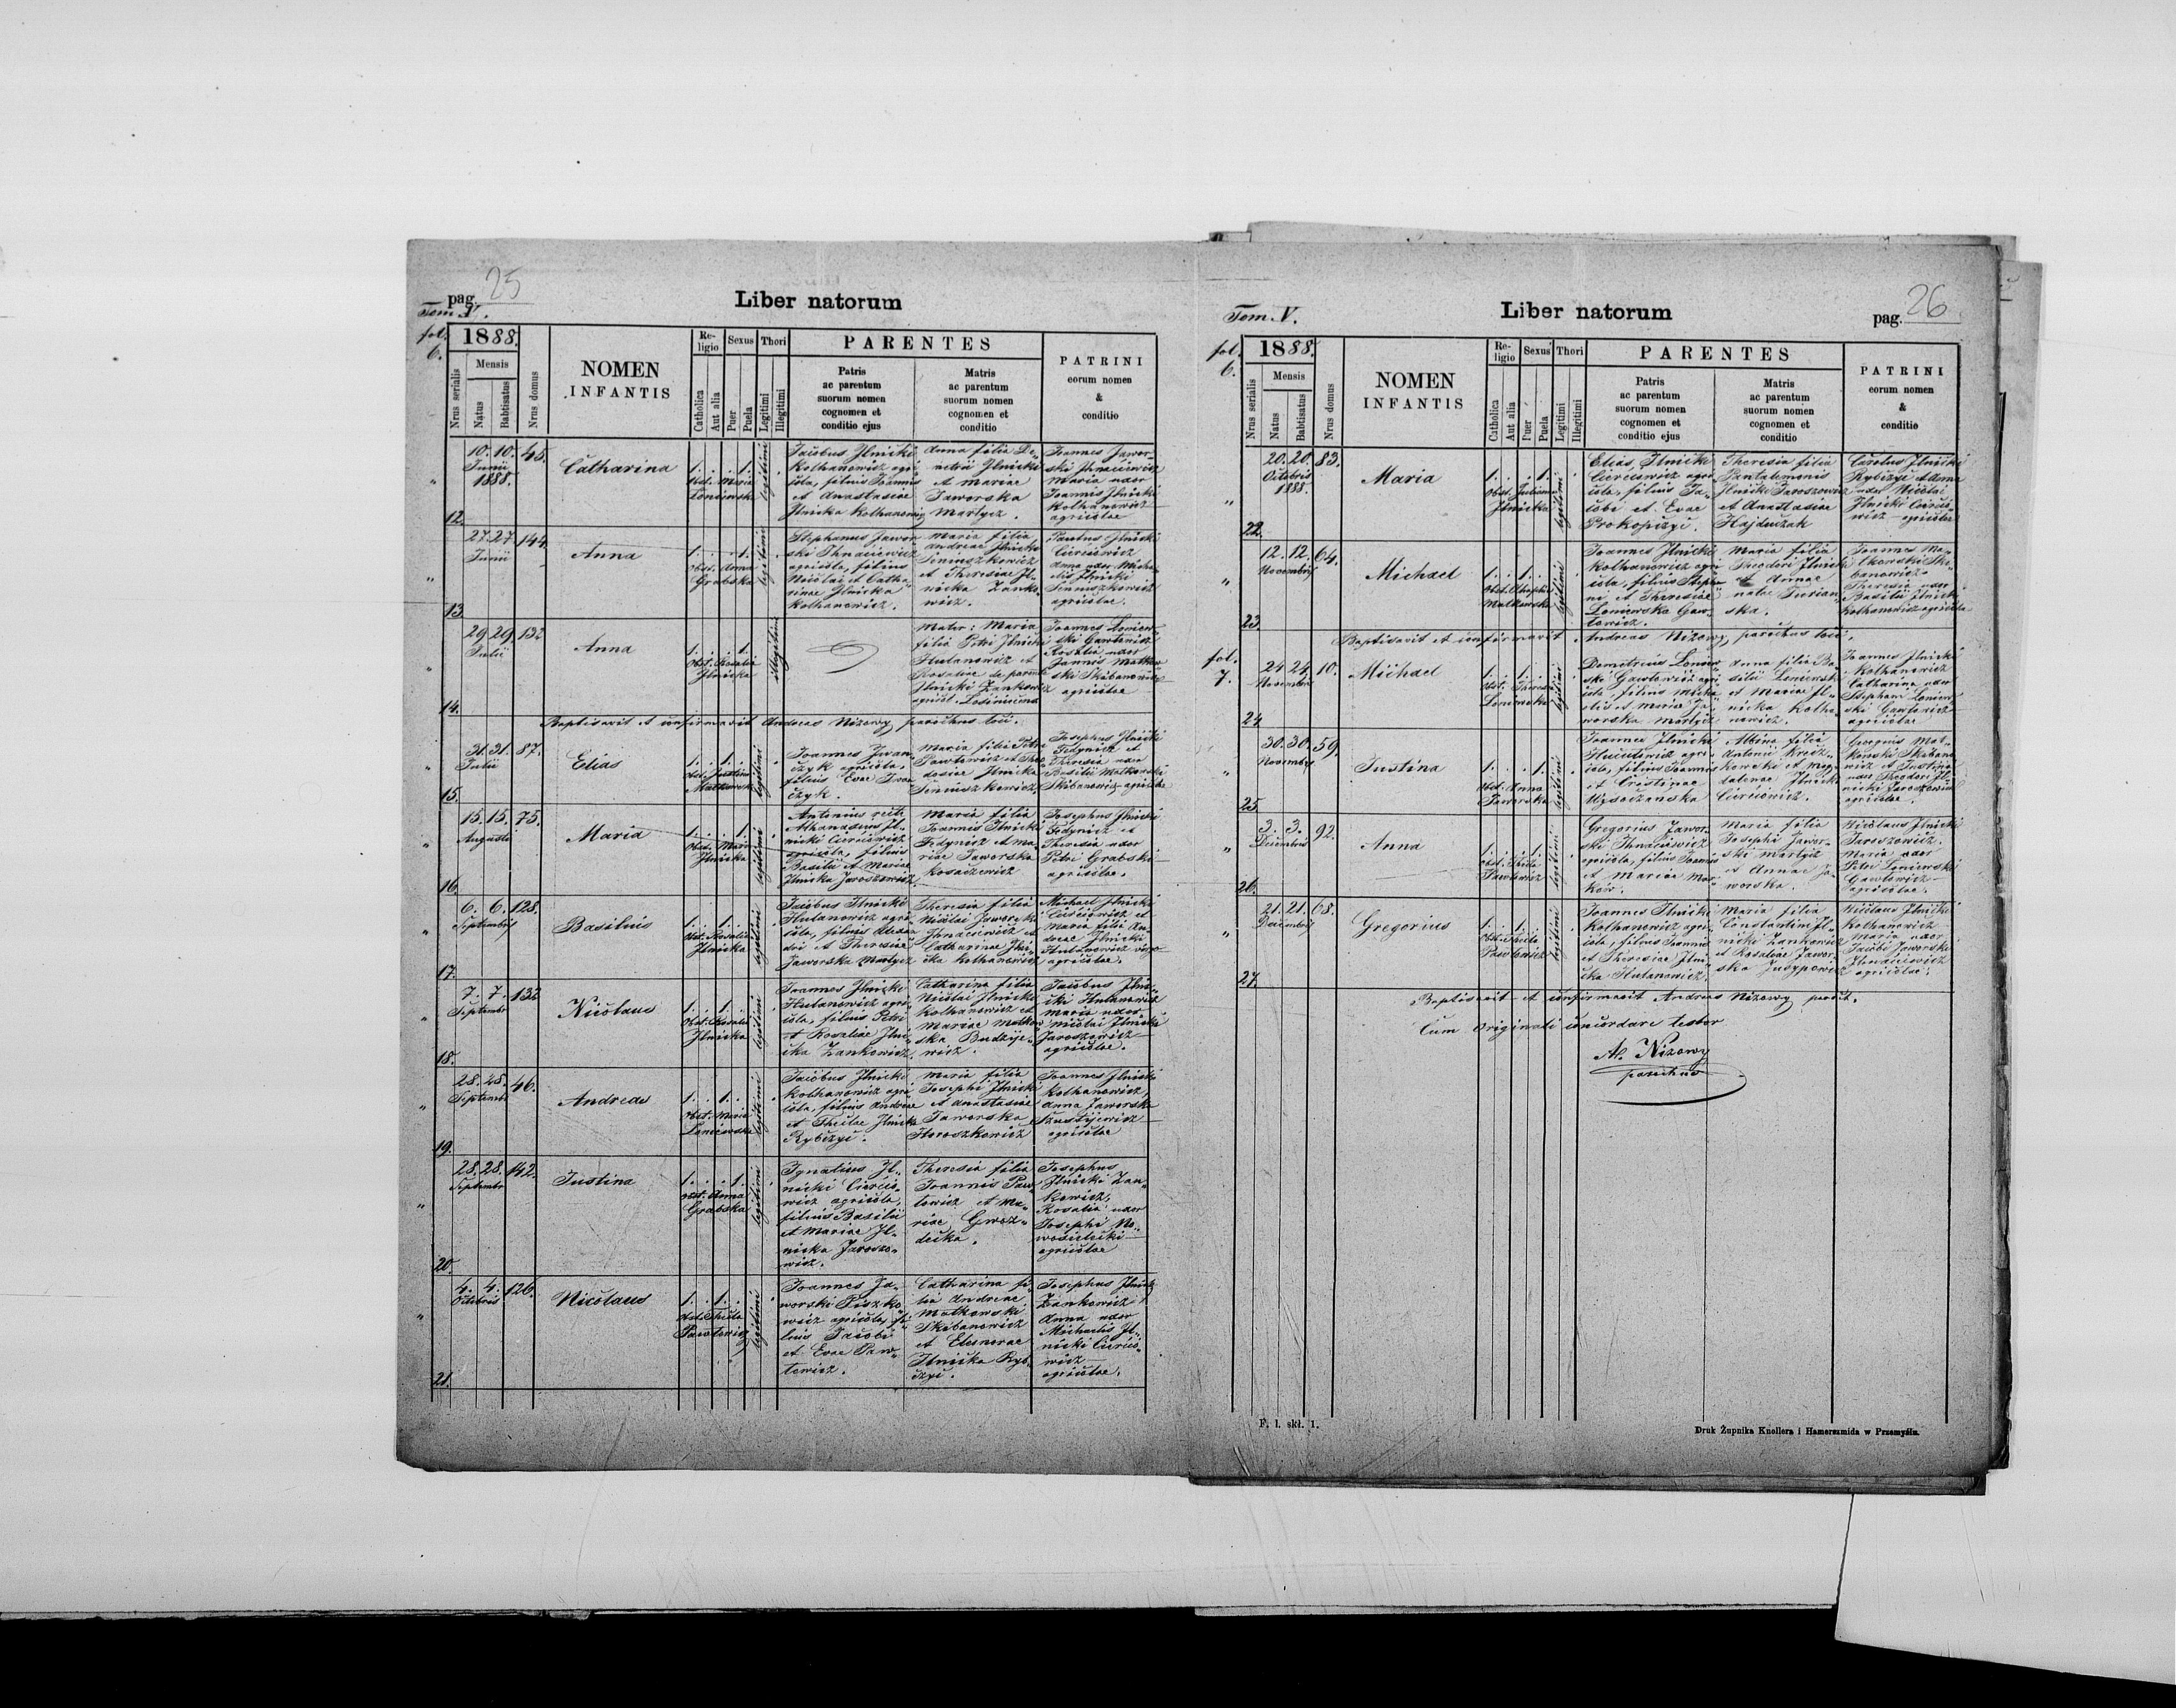 pag. 25
Liber natorum
Tom V.
fol. 6.
1888.
Nrus serialis
Mensis
Natus
Babtisatus
Nrus domus
NOMEN
INFANTIS
Religio
Catholica
Aut alia
Sexus
Puer
Puela
Thori
Legitimi
Illegitimi
PARENTES
Patris
ac parentum
suorum nomen
cognomen et
conditio ejus
Matris
ac parentum
suorum nomen
cognomen et
conditio
PATRINI
eorum nomen
&
conditio
12.
10. 10. 45.
Junii
1888.
Catharina
1. . . 1.
Obst. Maria
Loniewska
legitimi
Jacobus Ilnicki
Kolhanowicz agri
cola, filius Joannis
et Anastasiae
Ilnicka Kolhanowicz
Anna filia De„
metrii Ilnicki
et Mariae
Jaworska
Martycz.
Joannes Jawor„
ski Ihnaciewicz
Maria uxor
Joannis Ilnicki
Kolhanowicz
agricolae
13.
27. 27. 144.
Junii
Anna
1. . . 1.
Obst. Anna
Grabska
legitimi
Stephanus Jawor
ski Ihnaciewicz
agricola, filius
Nicolai et Catha„
rinae Ilnicka
Kolhanowicz.
Maria filia
Andreae Ilnicki
Seniuszkowicz
et Theresiae Il„
nicka Zanko„
wicz.
Paulus Ilnicki
Cierciewicz
Anna uxor Micha„
elis Ilnicki
Seniuszkowicz
agricolae.
14.
29. 29. 132
Julii
Anna
1. . . 1.
Obst. Rosalia
Ilnicka
illegitimi
Mater: Maria
filia Petri Ilnicki
Hutanowicz et
Rosaliae de parent.
Ilnicki Zankowicz
Joannes Loniew„
ski Gawlowicz
Rosalia uxor
Joannis Matkow
ski Skibanowicz
agricolae
Baptisavit et confirmavit Andreas Nizowy parochus loci.
15.
31. 31. 87.
Julii
Elias
1. . 1. .
Obst. Justina
legitimi
Joannes Iwan„
czyk agricola,
filius Evae Iwan
czyk.
Maria filia Petri
Pawlewicz et Theo
dosiae Ilnicka
Seniuszkowicz.
Josephus Ilnicki
Fedynicz et
Theresia uxor
Basilii Matkowski
Skibanowicz agricolae
16.
15. 15. 75.
Augusti
Maria
1. . . 1.
Obst. Maria
Ilnicka
legitimi
Antonius recte
Athanasius Il„
nicki Cierciewicz
agricola, filius
Basilii et Mariae
Ilnicka Jaroszewicz.
Maria filia
Joannis Ilnicki
Fedynicz et Ma„
riae Jaworska
Kosaczewicz
Josephus Ilnicki
Fedynicz et
Theresia uxor
Petri Grabski
agricolae.
17.
6. 6. 128.
Septembris
Basilius
1. . 1. .
Obst. Rosalia
Ilnicka
legitimi
Jacobus Ilnicki
Hutanowicz agri
cola, filius Alexan
dri et Theresiae
Jaworska Martycz
Theresia filia
Nicolai Jaworski
Ihnaciewicz et
Catharinae Ilni„
cka Kolhanowicz
Michael Ilnicki
Cierciewicz et
Maria filia An„
dreae Ilnicki
Hutanowicz virgo
agricolae.
18.
7. 7. 132
Septembr
Nicolaus
1. . 1. .
Obst. Rosalia
Ilnicka
legitimi
Joannes Ilnicki
Hutanowicz agri
cola, filius Petri
et Rosaliae Ilni„
cka Zankowicz.
Catharina filia
Nicolai Ilnicki
Kolhanowicz et
Mariae Matkow
ska Budzije„
wicz.
Jacobus Ilni„
cki Hutanowicz
Maria uxor
Nicolai Ilnicki
Jaroszewicz
agricolae.
19.
28. 28. 46.
Septembr
Andreas
1. . 1. .
Obst. Maria
Loniewska
legitimi
Jacobus Ilnicki
Kolhanowicz agri
cola, filius Andreae
et Theclae Ilnicka
Rybczyc.
Maria filia
Josephi Ilnicki
et Anastasiae
Jaworska
Horoszkowicz
Joannes Ilnicki
Kolhanowicz,
Anna Jaworska
agricolae
20.
28. 28. 142.
Septembr
Justina
1. . . 1.
Obst. Anna
Grabska
legitimi
Ignatius Il„
nicki Cierciе„
wicz agricola,
filius Basilii
et Mariae Il„
nicka Jaroszo„
wicz.
Theresia filia
Joannis Paw„
lewicz et Ma„
riae Gwoz„
decka.
Josephus
Ilnicki Zan„
kowicz,
Rosalia uxor
Josephi No„
wosielecki
agricolae
21.
4. 4. 126.
Octobris
Nicolaus
1. . 1. .
Obst. Thecla
Pawlewicz
legitimi
Joannes Ja„
worski Piszko„
wicz agricola, fi„
lius Jacobi
et Evae Paw„
lewicz.
Catharina fi„
lia Andreae
Matkowski
Skibanowicz
et Eleonorae
Ilnicka Ryb„
czyc.
Josephus Ilnicki
Zankowicz
Anna uxor
Michaelis Il„
nicki Ciercie„
wicz
agricolae.
Tom. V.
Liber natorum
pag. 26
fol. 6.
1888.
Nrus serialis
Mensis
Natus
Babtisatus
Nrus domus
NOMEN
INFANTIS
Religio
Catholica
Aut alia
Sexus
Puer
Puela
Thori
Legitimi
Illegitimi
PARENTES
Patris
ac parentum
suorum nomen
cognomen et
conditio ejus
Matris
ac parentum
suorum nomen
cognomen et
conditio
PATRINI
eorum nomen
&
conditio
22.
20. 20. 83.
Octobris
1888.
Maria
1. . . 1.
Obst. Juliana
Ilnicka
legitimi
Elias Ilnicki
Cierciewicz agri
cola, filius Ja„
cobi et Evae
Prokopczyc.
Theresia filia
Pantalemonis
Ilnicki Jaroszewicz
et Anastasiae
Hajduczak
Carolus Ilnicki
Rybczyc et Anna
uxor Nicolai
Ilnicki Ciercie„
wicz agricolae
23.
12. 12. 64.
Novembris
Michael
1. . 1. .
Matkowska
legitimi
Joannes Ilnicki
Kolhanowicz agri
cola, filius Stepha
ni et Theresiae
Loniewska Gaw„
lowicz.
Maria filia
Theodori Ilnicki
et Annae
natae Turian„
ska.
Joannes Ma„
tkowski Ski„
banowicz
Theresia uxor
Basilii Ilnicki
Kolhanowicz agricolae
Baptisavit et confirmavit Andreas Nizowy, parochus loci.
fol. 7.
24.
24. 24. 10.
Novembris
Michael
1. . 1. .
Obst. Theresia
Loniewska
legitimi
Demetrius Loniew
ski Gawlowicz agri
cola, filius Micha„
elis et Maria Ja„
worska Martycz
Anna filia Ba„
silii Loniewski
et Mariae Il„
nicka Kolha„
nowicz.
Joannes Ilnicki
Kolhanowicz
Catharina uxor
Stephani Loniew„
ski Gawlowicz
agricolae
25.
30. 30. 59.
Novembr
Justina
1. . . 1.
Obst. Anna
Jaworska
legitimi
Joannes Ilnicki
agri„
cola, filius Joannis
et Christinae
Wysoczanska
Albina filia
Antonii Krecz„
kowski et Mag„
dalenae Ilnicka
Cierciewicz.
Georgius Mat„
kowski Skibano„
wicz et Justina
uxor Theodori Il„
nicki Jaroszewicz
agricolae.
26.
3. 3. 92.
Decembris
Anna
1. . . 1.
Obst. Thecla
Pawlewicz
legitimi
Gregorius Jawor„
ski Ihnaciewicz
agricola, filius Joannis
et Mariae Mar„
ków.
Maria filia
Josephi Jawor„
ski Martycz
et Annae Ja„
worska.
Nicolaus Ilnicki
Jaroszewicz.
Maria uxor
Petri Loniewski
Gawlowicz
agricolae.
27.
21. 21. 68.
Decembris
Gregorius
1. . 1. .
Obst. Thecla
Pawlewicz
legitimi
Joannes Ilnicki
Kolhanowicz agri„
cola, filius Joannis
et Theresiae Ilni„
cka Hutanowicz.
Maria filia
Constantini Il„
nicki Zankowicz
et Rosaliae Jawor„
ska Jusypowicz
Nicolaus Ilnicki
Kolhanowicz
Maria uxor
Jacobi Jaworski
Ihnaciewicz
agricolae.
Baptisavit et confirmavit Andreas Nizowy paroch.
Cum originali concordare testor
A. Nizowy
parochus
F. l. skł. 1.
Druk Żupnika Knollera i Hamerszmida w Przemyślu.